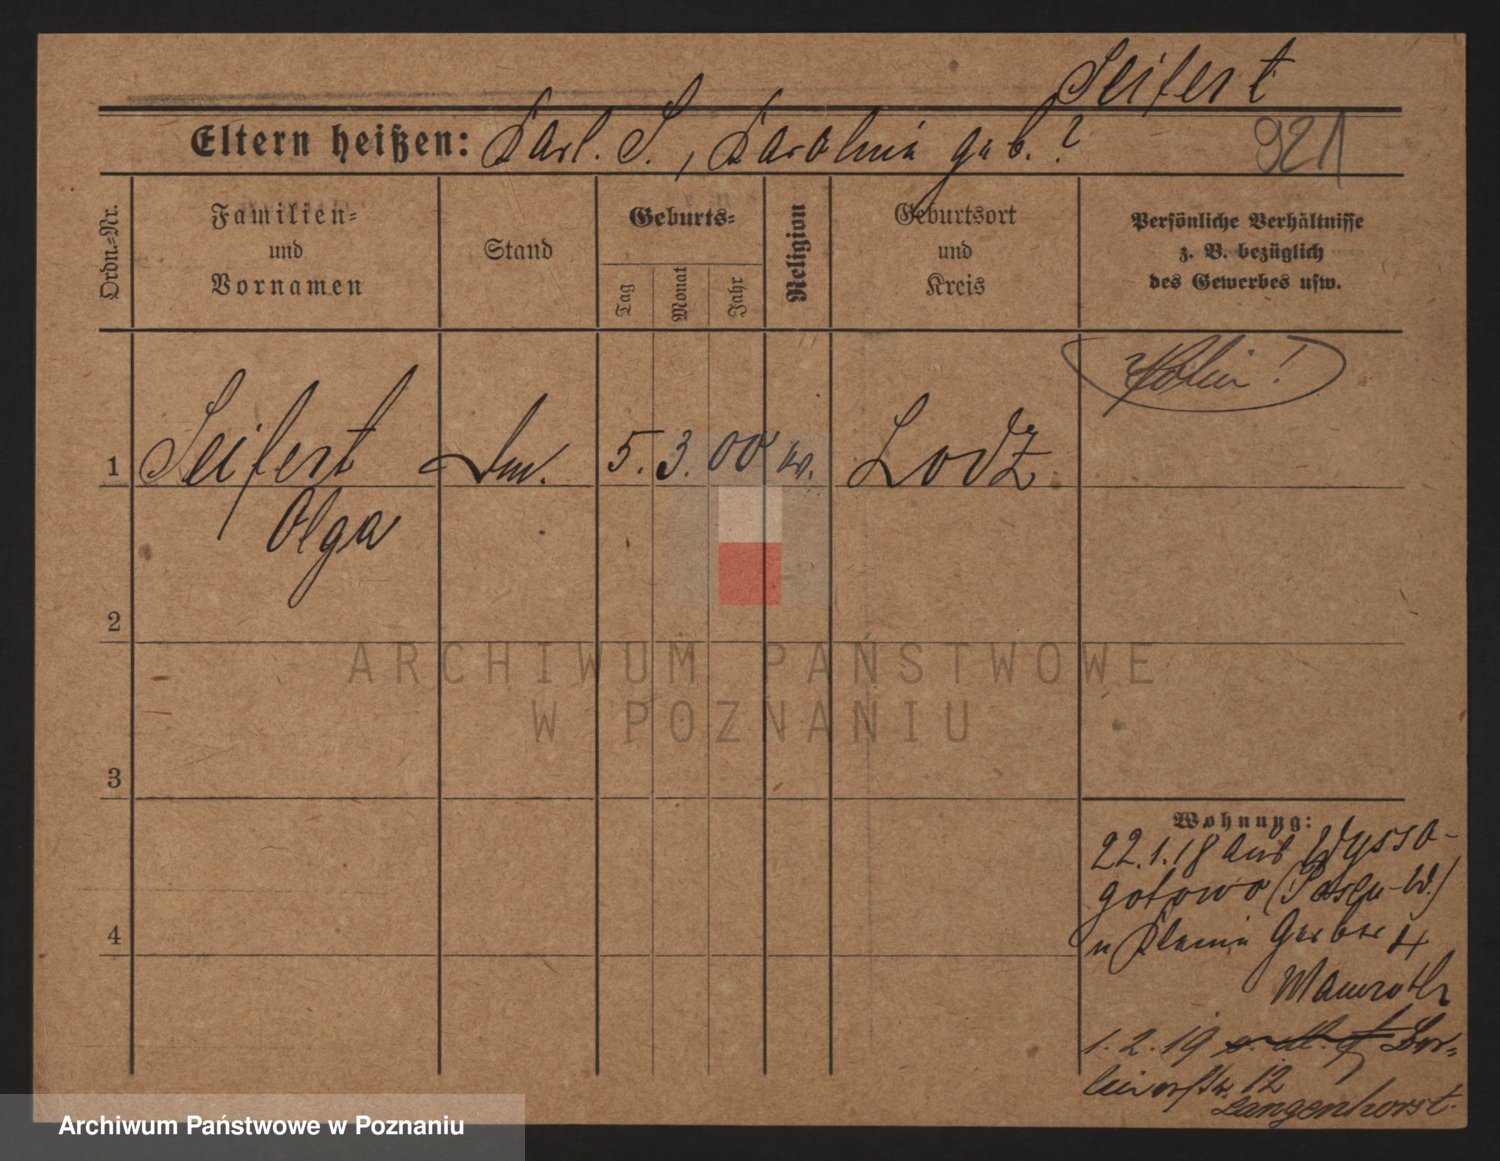 Seifert
Eltern heißen: Karl. S., Karolina geb. ?
921
Ordn.-Nr.
Familien-
und
Vornamen
Stand
Geburts-
Tag
Monat
Jahr
Religion
Geburtsort
und
Kreis
Persönliche Verhältnisse
z. B. bezüglich
des Gewerbes usw.
Polin!
1
Seifert
5. 3. 00
Lodz
Olga
2
ARCHIWUM PAŃSTWOWE
W POZNANIU
3
Wohnung:
22.1.18 aus Wysso-
gotowo (Posen-W.)
n Kleine Gerber 4
Mamroth
4
1.2.19 Ber-
linerstr. 12
Langenhorst.
Archiwum Państwowe w Poznaniu